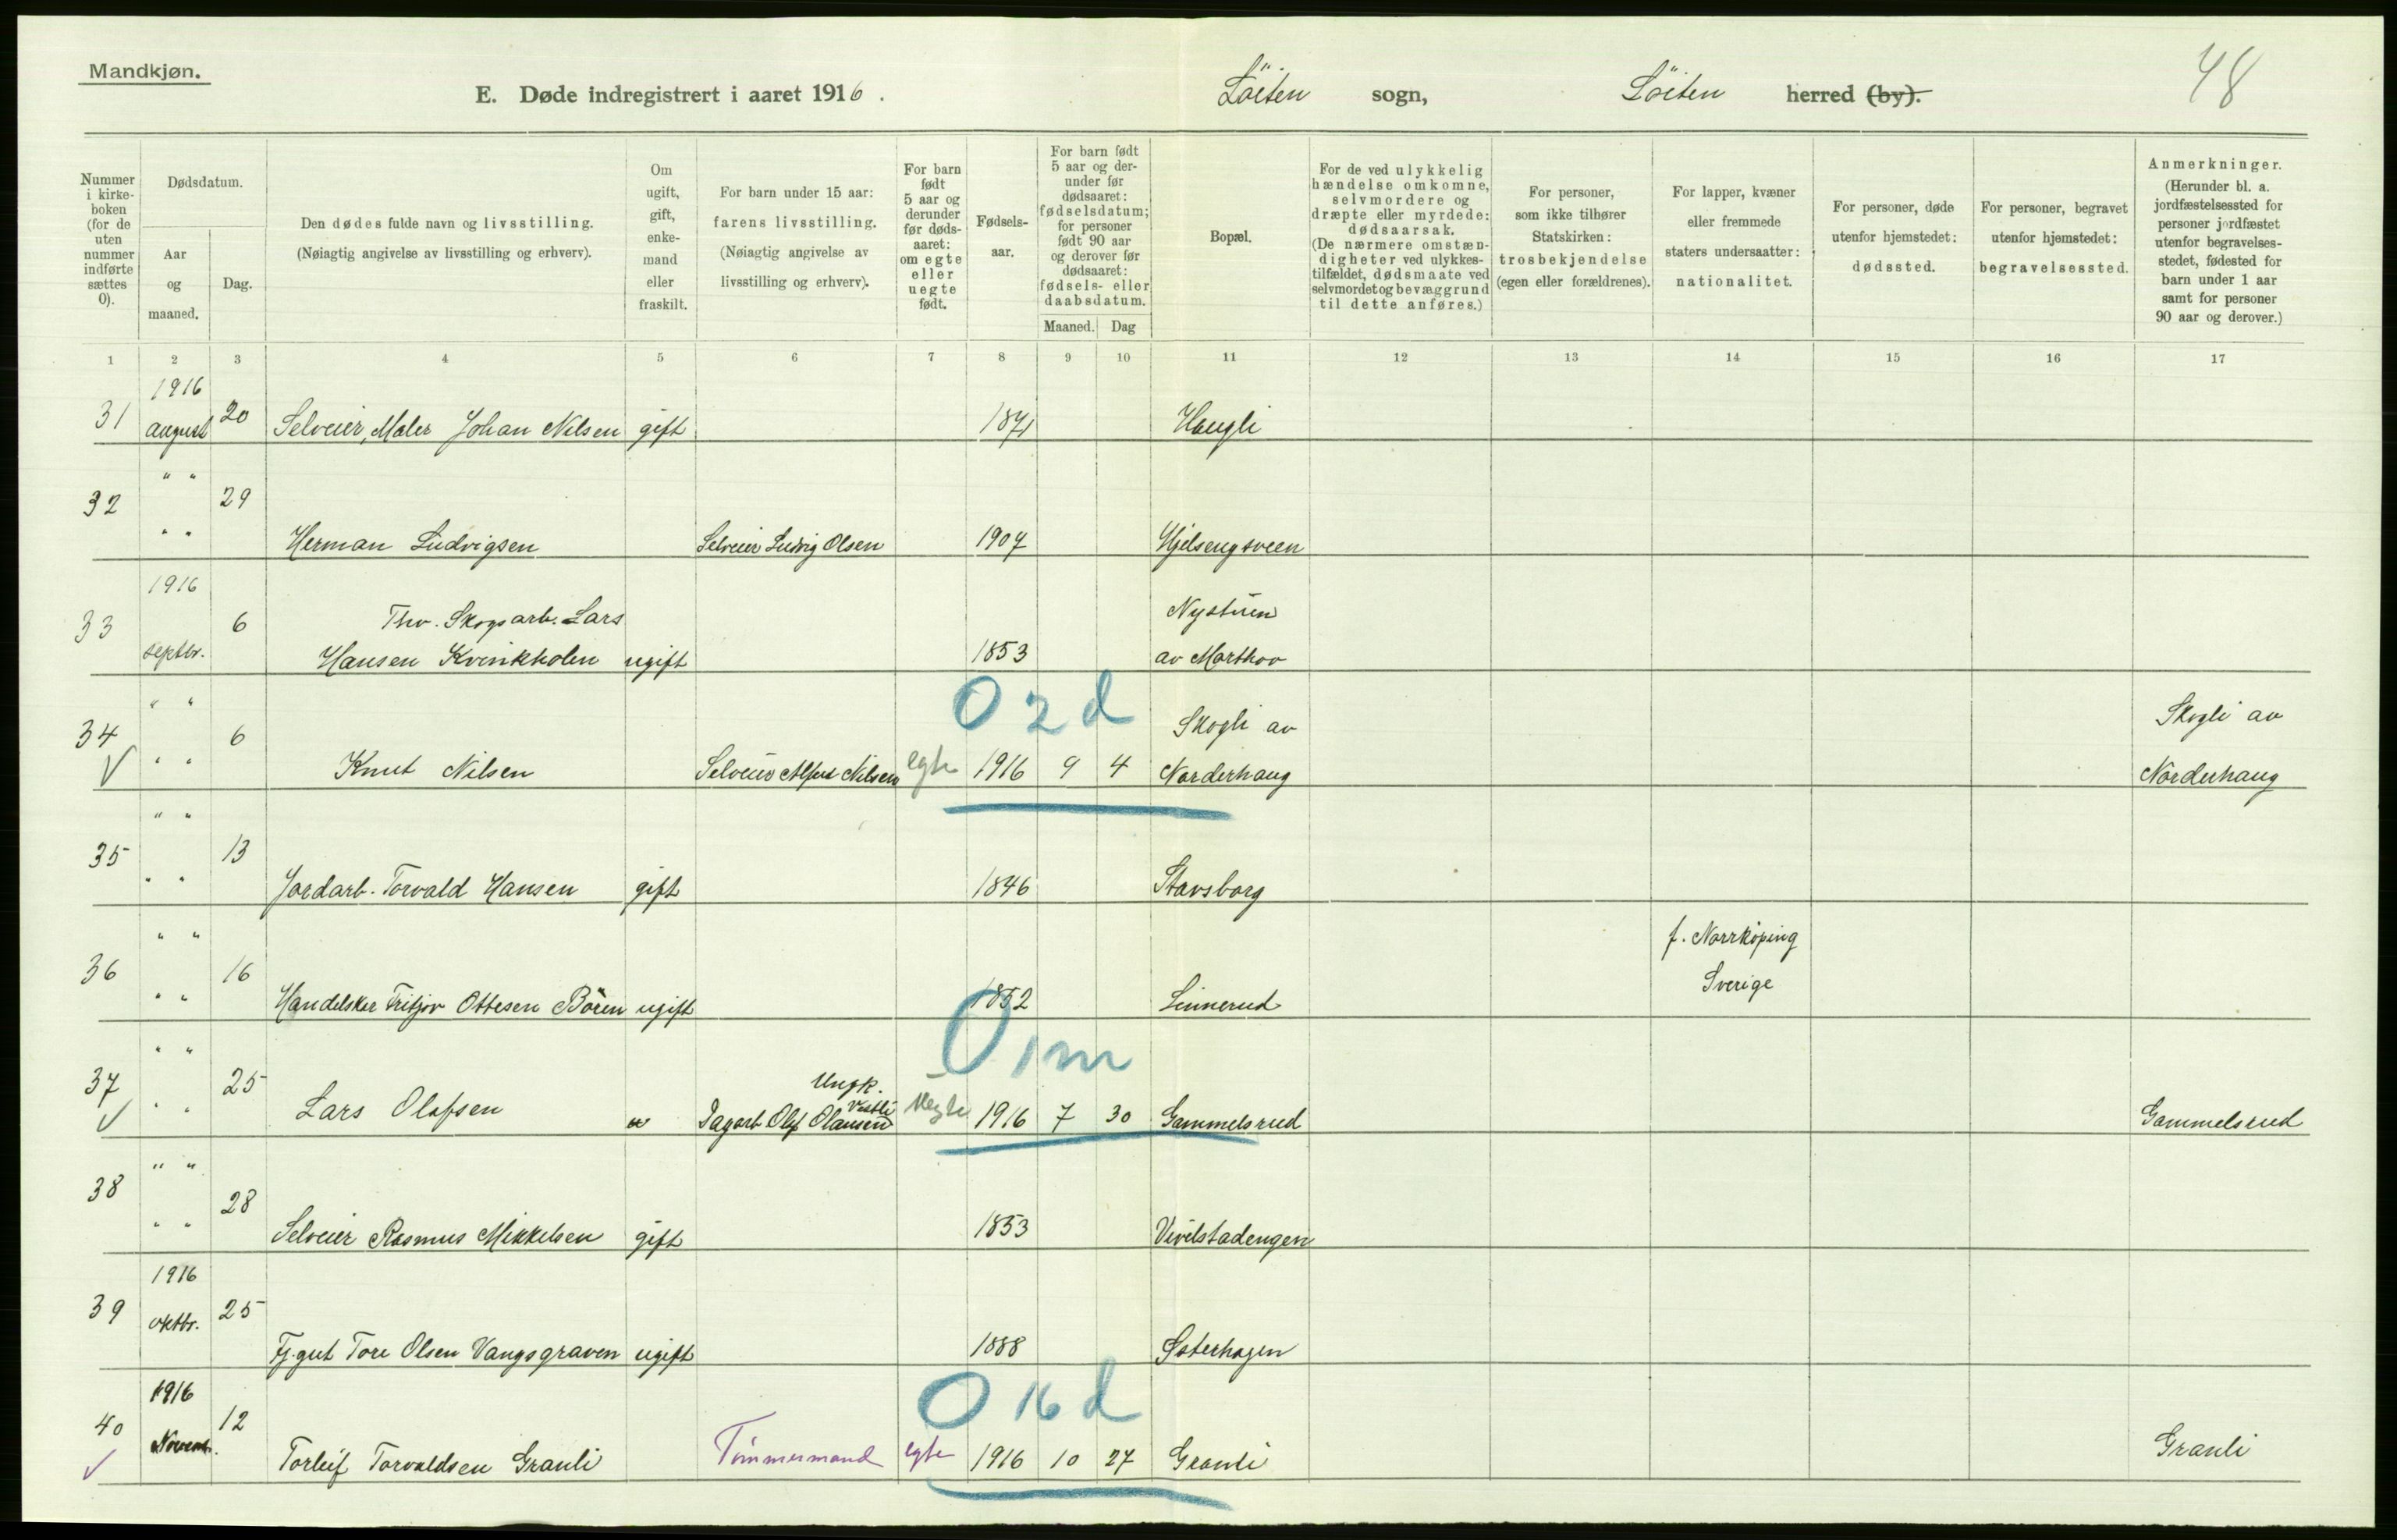 Mandkjøn.
E. Døde indregistrert i aaret 1916.
Löiten sogn,
Löiten herred (by).
48
Nummer i kirke-boken (for de uten nummer indførte sættes 0).
Dødsdatum.
Aar og maaned.
Dag.
Den dødes fulde navn og livsstilling.
(Nøiagtig angivelse av livsstilling og erhverv).
Om ugift, gift, enke-mand eller fraskilt.
For barn under 15 aar: farens livsstilling.
(Nøiagtig angivelse av livsstilling og erhverv).
For barn født 5 aar og derunder før døds-aaret: om egte eller uegte født.
Fødsels-aar.
For barn født 5 aar og der-under før dødsaaret: fødselsdatum; for personer født 90 aar og derover før dødsaaret: fødsels- eller daabsdatum.
Maaned.
Dag
Bopæl.
For de ved ulykkelig hændelse omkomne, selvmordere og dræpte eller myrdede: dødsaarsak.
(De nærmere omstæn-digheter ved ulykkes-tilfældet, dødsmaate ved selvmordet og bevæggrund til dette anføres.)
For personer, som ikke tilhører Statskirken: trosbekjendelse (egen eller forældrenes).
For lapper, kvæner eller fremmede staters undersaatter: nationalitet.
For personer, døde utenfor hjemstedet: dødssted.
For personer, begravet utenfor hjemstedet: begravelsessted.
Anmerkninger.
(Herunder bl. a. jordfæstelsessted for personer jordfæstet utenfor begravelses-stedet, fødested for barn under 1 aar samt for personer 90 aar og derover.)
1 2 3 4 5 6 7 8 9 10 11 12 13 14 15 16 17
1916
31 august 20 Selveier, Maler Johan Nilsen gift 1871 Haugli
" "
32 29
" " Herman Ludvigsen Selveier Ludvig Olsen 1907 Hjelsengsveen
1916
33 6 Thv. Skogsarb. Lars Nystuen
septbr. Hansen Kvinkholen ugift 1853 av Marthov
0 2 d
" " Skogli av Skogli av
34 6
√ " " Knut Nilsen Selveier Alfred Nilsen egte 1916 9 4 Norderhaug Norderhaug
" "
35 13
" " Jordarb. Torvald Hansen gift 1846 Stavsborg
" " f. Norrköping
36 16 Sverige
" " Handelskar Fritjov Ottesen Bören ugift 1852 Linnerud
0 1 m
" "
37 25 Ungk.
√ " " Lars Olafsen Dagarb Olaf Olausen Vestli Uegte 1916 7 30 Gammelsrud Gammelsrud
" "
38 28
" " Selveier Rasmus Mikkelsen gift 1853 Vivilstadengen
1916
39 oktbr. 25
Fj.gut Tore Olsen Vangsgraven ugift 1888 Sæterhagen
0 16 d
1916
40 Novem. 12
√ Torleif Torvaldsen Granli Tömmermand egte 1916 10 27 Granli Granli